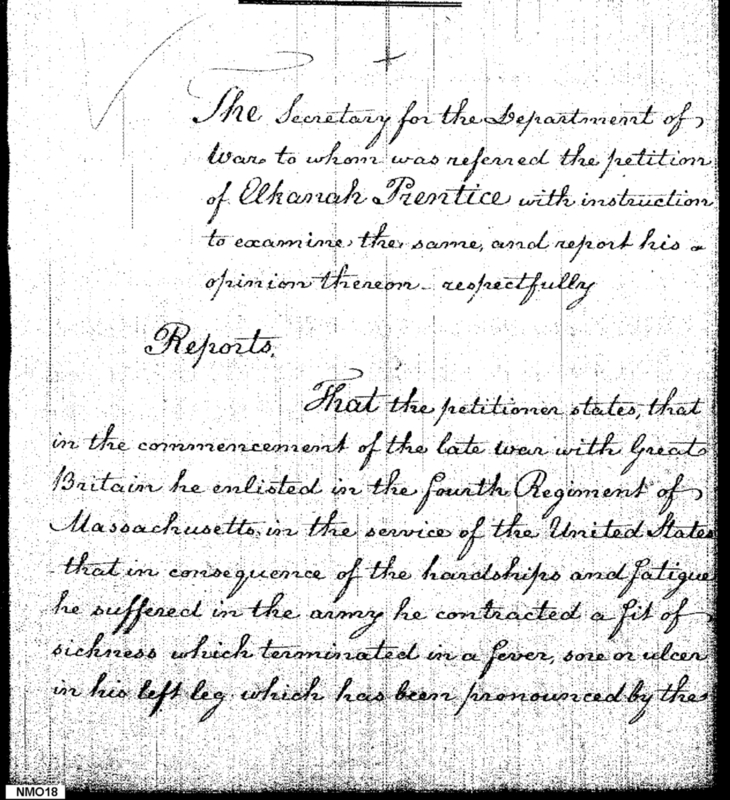 The Secretary for the Department of
War to whom was referred the petition
of Elkanah Prentice with instruction
to examine the same, and report his
opinion thereon respectfully
Reports.
That the petitioner states, that
in the commencement of the late war with Great
Britain he enlisted in the fourth Regiment of
Massachusetts, in the service of the United States
that in consequence of the hardships and fatigue
he suffered in the army he contracted a fit of
sickness which terminated in a fever, sore or ulcer
in his left leg which has been pronounced by the
NMO18